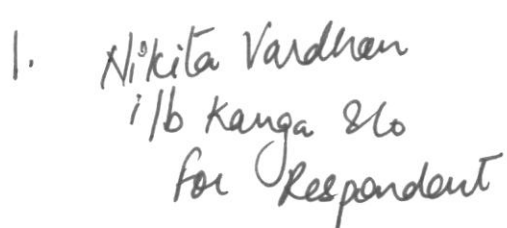 1. Nikita Vardhan
i/b Kanga &Co
for Respondent